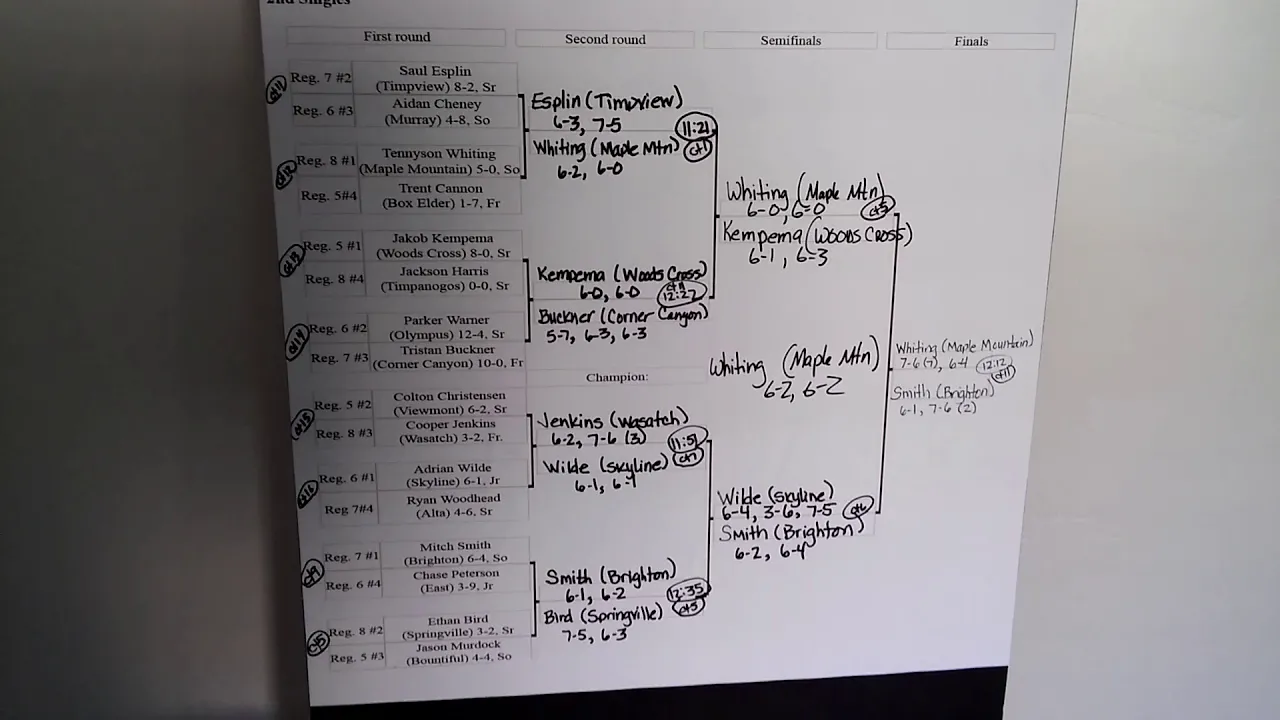 2nd Singles
First round
Second round
Semifinals
Finals
Reg. 7 #2
Saul Esplin
(Timpview) 8-2, Sr
Reg. 6 #3
Aidan Cheney
(Murray) 4-8, So
Reg. 8 #1
Tennyson Whiting
(Maple Mountain) 5-0, So
Reg. 5#4
Trent Cannon
(Box Elder) 1-7, Fr
Reg. 5 #1
Jakob Kempema
(Woods Cross) 8-0, Sr
Reg. 8 #4
Jackson Harris
(Timpanogos) 0-0, Sr
Reg. 6 #2
Parker Warner
(Olympus) 12-4, Sr
Reg. 7 #3
Tristan Buckner
(Corner Canyon) 10-0, Fr
Reg. 5 #2
Colton Christensen
(Viewmont) 6-2, Sr
Reg. 8 #3
Cooper Jenkins
(Wasatch) 3-2, Fr.
Reg. 6 #1
Adrian Wilde
(Skyline) 6-1, Jr
Reg 7#4
Ryan Woodhead
(Alta) 4-6, Sr
Reg. 7 #1
Mitch Smith
(Brighton) 6-4, So
Reg. 6 #4
Chase Peterson
(East) 3-9, Jr
Reg. 8 #2
Ethan Bird
(Springville) 3-2, Sr
Reg. 5 #3
Jason Murdock
(Bountiful) 4-4, So
Esplin (Timpview)
6-3, 7-5
11:21
Whiting (Maple Mtn)
ct1
6-2, 6-0
Kempema (Woods Cross)
6-0, 6-0
12:27
Buckner (Corner Canyon)
5-7, 6-3, 6-3
Champion:
Jenkins (Wasatch)
6-2, 7-6 (3)
11:51
Wilde (Skyline)
ct7
6-1, 6-1
Smith (Brighton)
6-1, 6-2
12:35
Bird (Springville)
ct5
7-5, 6-3
Whiting (Maple Mtn)
6-0, 6-0
Kempema (Woods Cross)
6-1, 6-3
Whiting (Maple Mtn)
6-2, 6-2
Wilde (Skyline)
6-4, 3-6, 7-5
Smith (Brighton)
6-2, 6-4
Whiting (Maple Mountain)
7-6 (7), 6-4
12:12
ct11
Smith (Brighton)
6-1, 7-6 (2)